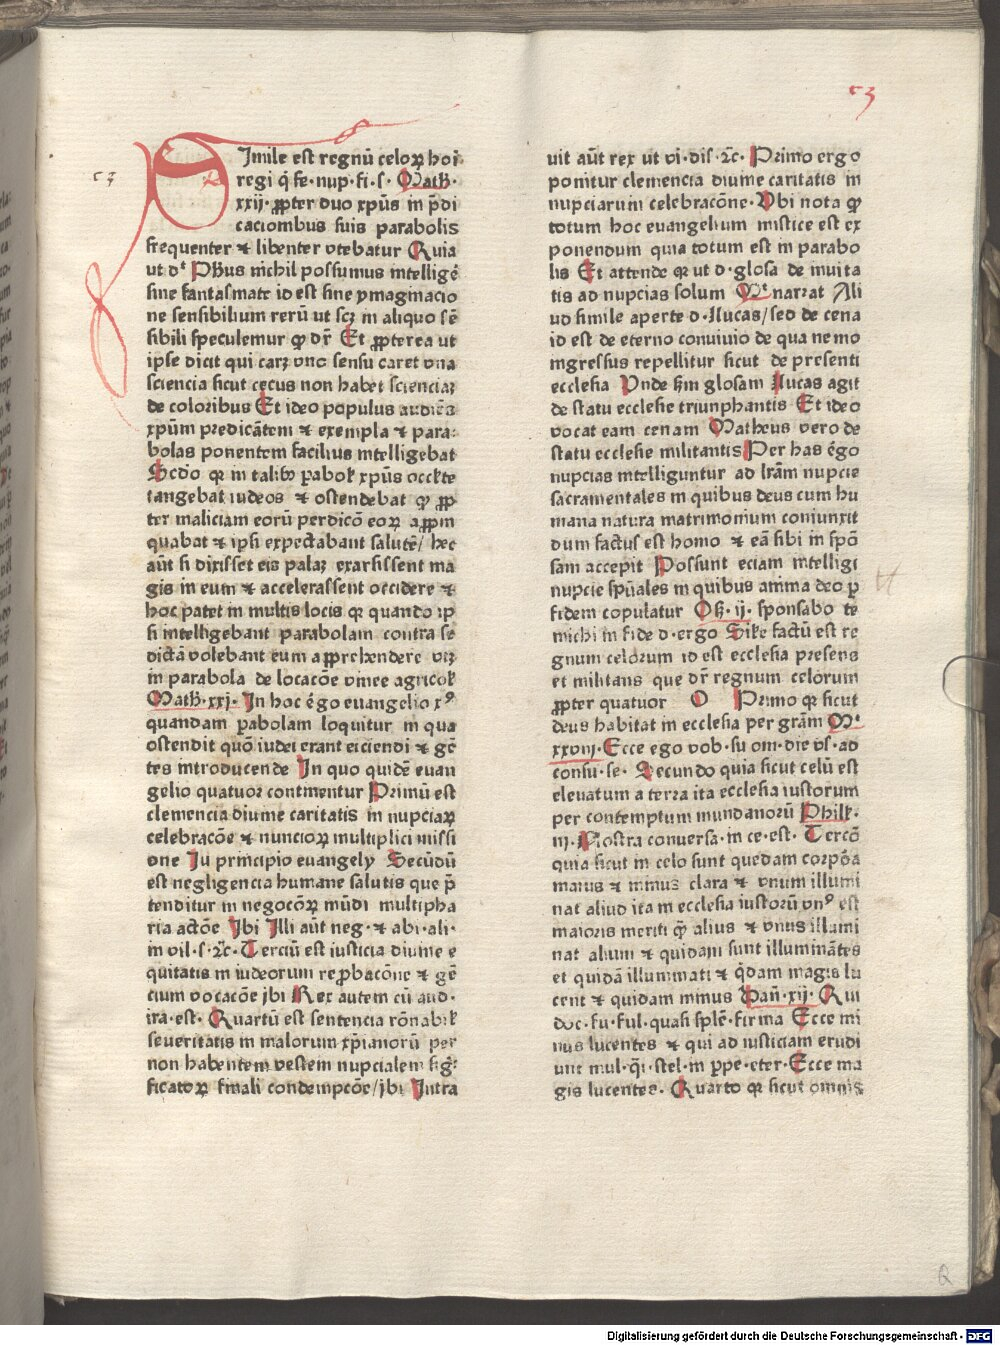 53
57
Simile est regnū celoꝝ hoī
regi q̄ fe· nup· fi· s· Math·
xxij· ꝓpter duo xp̄us in p̄di
cacionibus suis parabolis
frequenter ⁊ libenter vtebatur Quia
ut dt Ph̄us nichil possumus intelligē
sine fantasmate id est sine ymaginacio
ne sensibilium rerū ut scꝫ in aliquo sē
sibili speculemur ꝙ dr̄ Et ꝓpterea ut
ipse dicit qui carꝫ vno sensu caret vna
sciencia sicut cecus non habet scienciaꝫ
de coloribus Et ideo populus audiēs
xp̄um predicātem ⁊ exempla ⁊ para:
bolas ponentem facilius intelligebat
Scd̄o ꝙ in talibꝰ pabol' xp̄us occl̄te
tangebat iudeos ⁊ ostendebat ꝙ ꝓp
ter maliciam eorū perdicō eoꝝ aꝓpin
quabat ⁊ ip̄i expectabant salutē/ hec
aūt si dixisset eis palaꝫ exarsissent ma
gis in eum ⁊ accelerassent occidere ⁊
hoc patet in multis locis ꝙ quando ip
si intelligebant parabolam contra se
dictā volebant eum apprehendere vtꝫ
in parabola de locacōe vinee agricol'
Math·xxi· In hoc ēgo euangelio xꝰ
quandam pabolam loquitur in qua
ostendit quō iudei erant eiciendi ⁊ gē
tes introducende In quo quidē euan
gelio quatuor continentur Primū est
clemencia diuine caritatis in nupciaꝝ
celebracōe ⁊ nuncioꝝ multiplici missi
one Ju principio euangely Secūdū
est negligencia humane salutis que p̄
tenditur in negocōꝝ mūdi multipha
ria actōe Ibi Illi aūt neg· ⁊ abi·ali·
in vil·s·⁊c̄· Terciū est iusticia diuine e
quitatis in iudeorum rep̄bacōne ⁊ gē
cium vocacōe ibi Rex autem cū aud·
ira·est· Quartū est sentencia rōnabil'
seueritatis in malorum xp̄ianorū per
non habentem vestem nupcialem sig:
ficatoꝝ finali condempcōe/ibi Intra
uit aūt rex ut vi·dis·⁊c̄· Primo ergo
ponitur clemencia diuine caritatis in
nupciarum celebracōne·Vbi nota ꝙ
totum hoc euangelium mistice est ex
ponendum quia totum est in parabo
lis Et attende ꝙ ut d·glosa de inuita
tis ad nupcias solum Mt narrat Ali
ud simile aperte d·Lucas/sed de cena
id est de eterno conuiuio de qua nemo
ingressus repellitur sicut de presenti
ecclesia Vnde sm̄ glosam Lucas agit
de statu ecclesie triunphantis Et ideo
vocat eam cenam Matheus vero de
statu ecclesie militantis Per has ēgo
nupcias intelliguntur ad lr̄am nupcie
sacramentales in quibus deus cum hu
mana natura matrimonium coniunxit
dum factus est homo ⁊ eā sibi in spō
sam accepit Possunt eciam intelligi
nupcie sp̄uales in quibus anima deo p
fidem copulatur Os̄·ij· sponsabo te
michi in fide d·ergo Sil'e factū est re
gnum celorum id est ecclesia presens
et militans que dr̄ regnum celorum
ꝓpter quatuor O Primo ꝙ sicut
deus habitat in ecclesia per grām Mt
xxviij·Ecce ego vob·su·om·die vs·ad
consu·se· Secundo quia sicut celū est
eleuatum a terra ita ecclesia iustorum
per contemptum mundanorū Phill'·
iij·Nostra conuersa·in ce·est· Tercō
quia sicut in celo sunt quedam corpōa
maius ⁊ minus clara ⁊ vnum illumi
nat aliud ita in ecclesia iustorū vnꝰ est
maioris meriti q̄ alius ⁊ vnus illumi
nat alium ⁊ quidam sunt illuminātes
et quidā illuminati ⁊ q̄dam magis lu
cent ⁊ quidam minus Dan̄·xij· Qui
doc·fu·ful·quasi splē·firma Ecce mi
nus lucentes ⁊ qui ad iusticiam erudi
unt mul·q̄i·stel·in ꝑpe·eter·Ecce ma
gis lucentes· Quarto ꝙ sicut omnis
Q
Digitalisierung gefördert durch die Deutsche Forschungsgemeinschaft - DFG